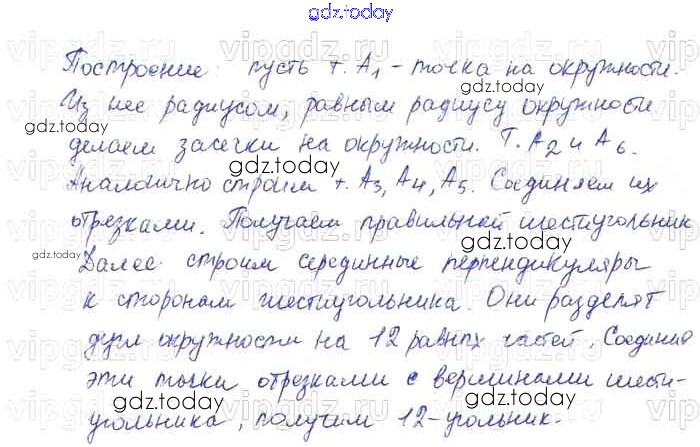 gdz.today
Построение: пусть т. A₁ - точка на окружности.
Из нее радиусом, равным радиусу окружности
делаем засечки на окружности. Т. A₂ и A₆.
Аналогично строим т. A₃, A₄, A₅. Соединяем их
отрезками. Получаем правильный шестиугольник
Далее строим серединные перпендикуляры
к сторонам шестиугольника. Они разделят
дуги окружности на 12 равных частей. Соединив
эти точки отрезками с вершинами шести-
угольника, получим 12-угольник.